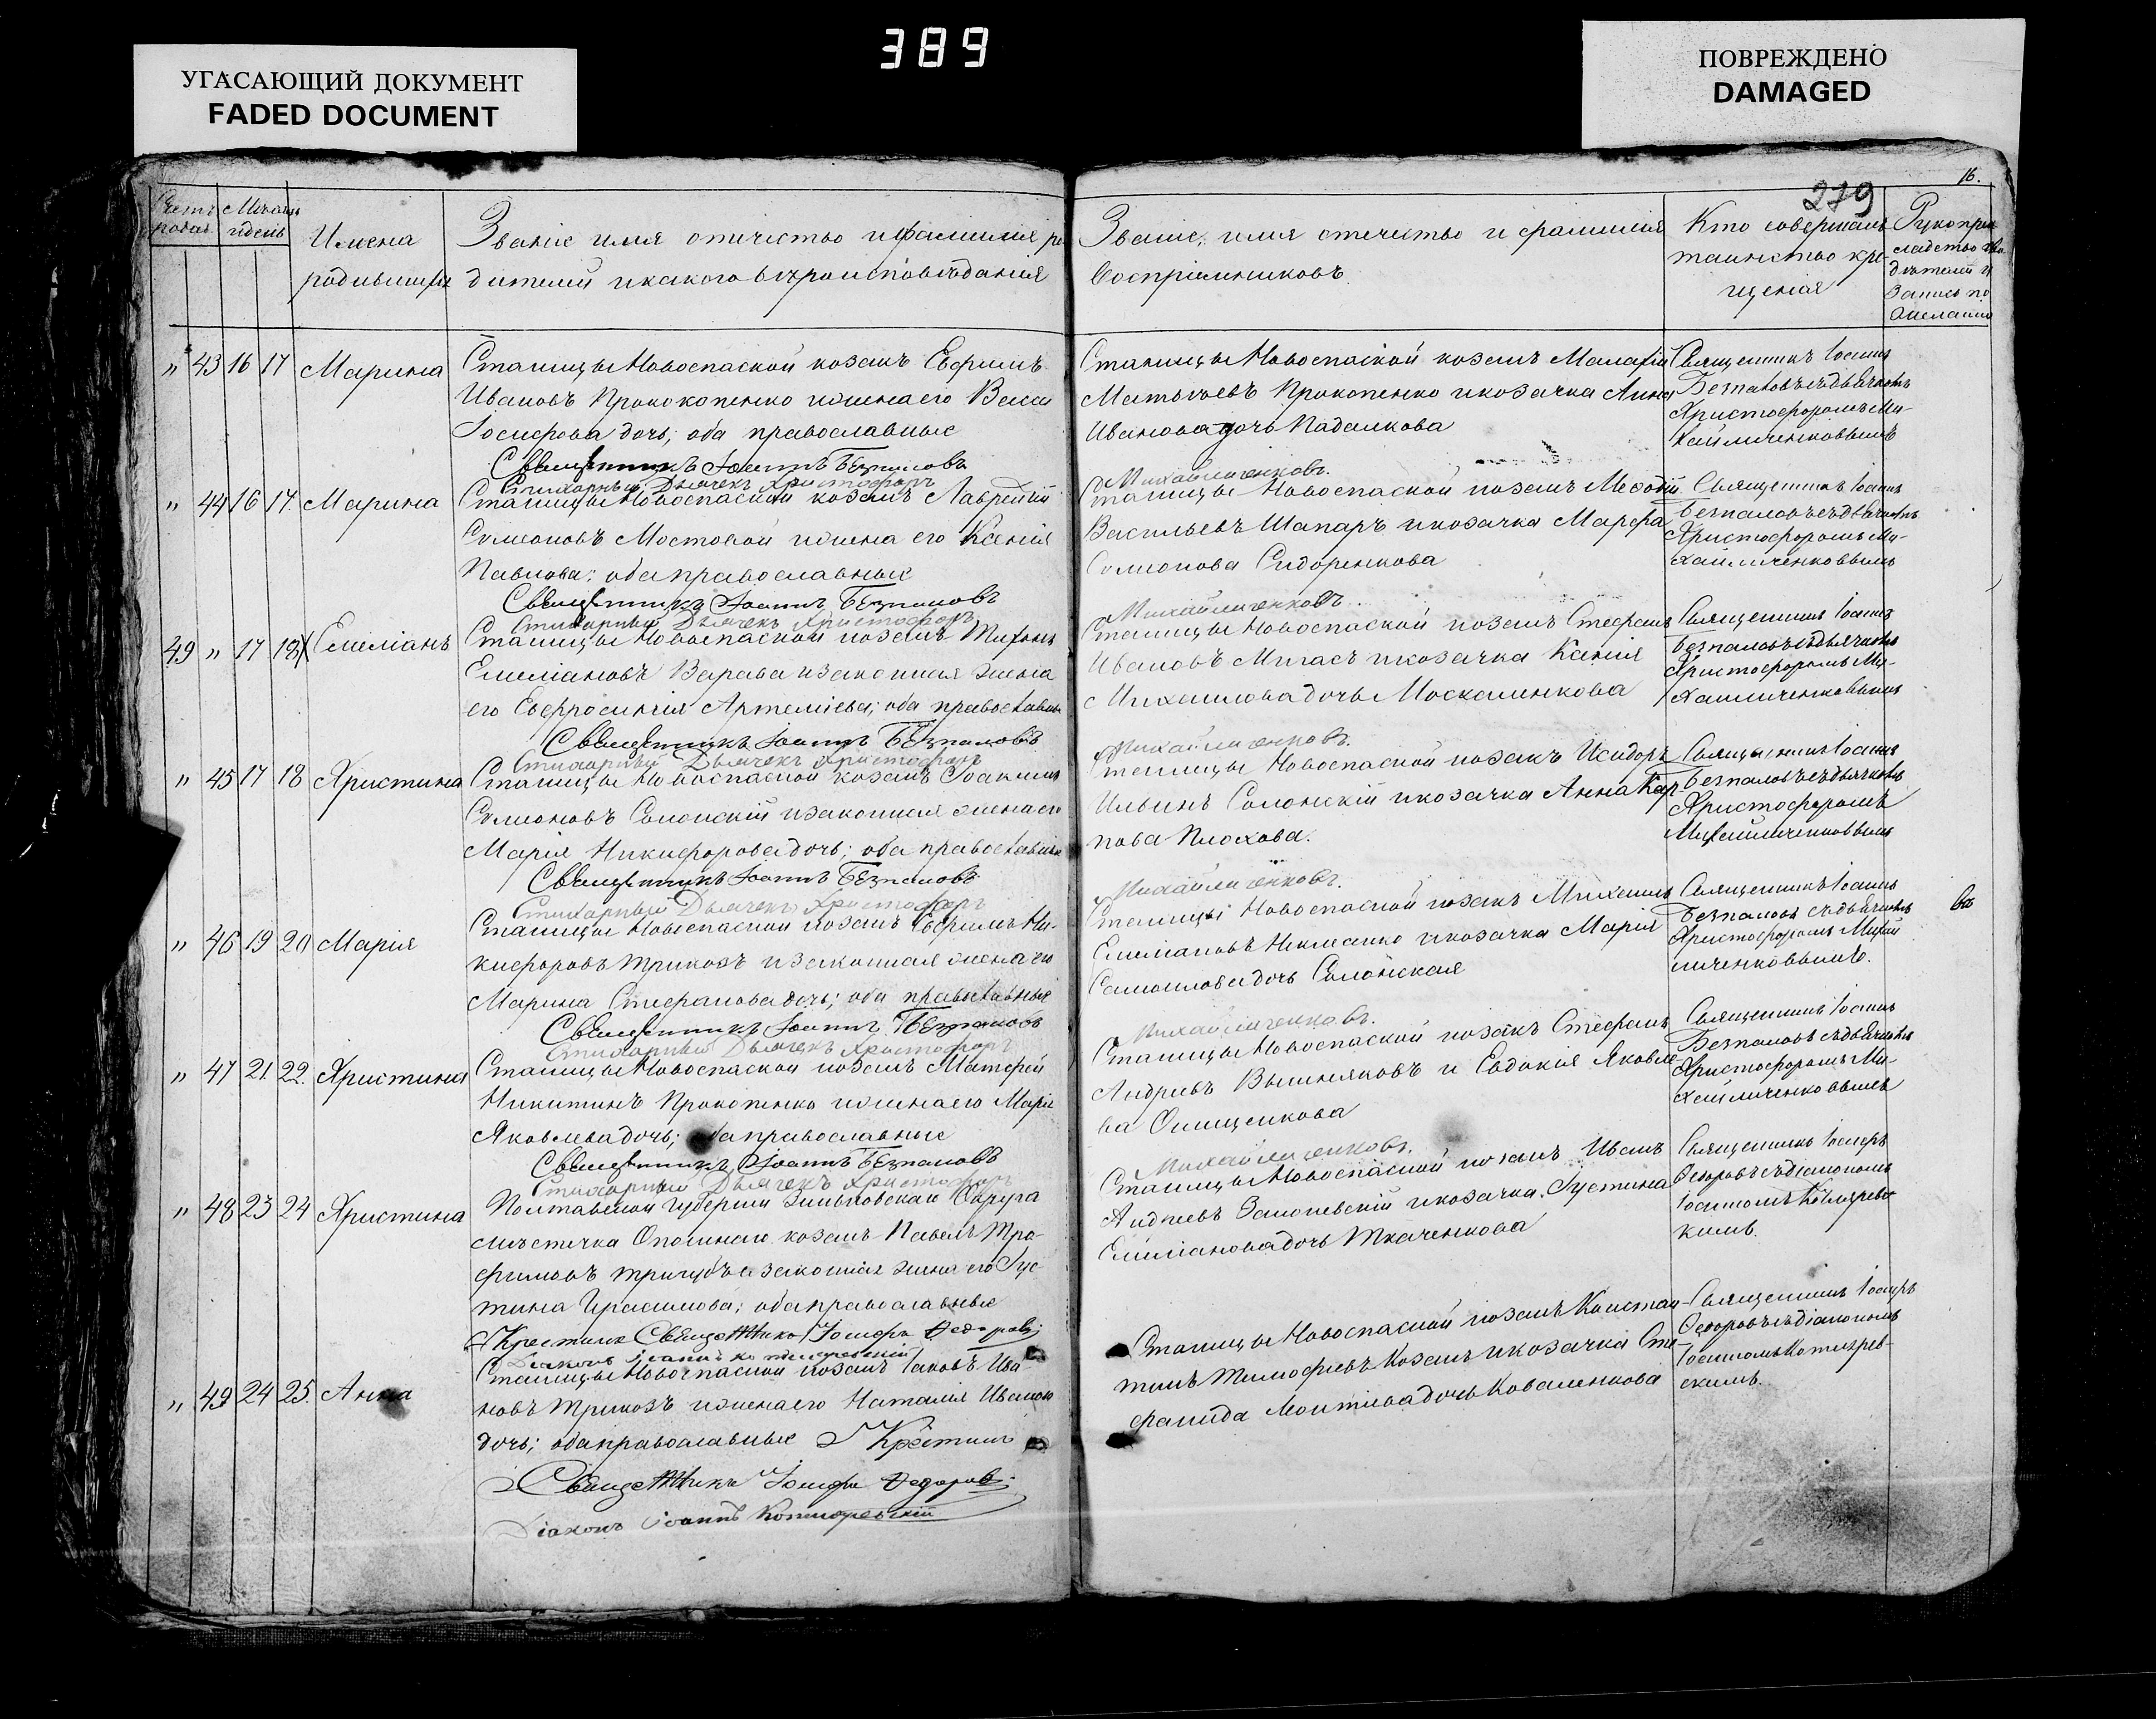 389
УГАСАЮЩИЙ ДОКУМЕНТ
FADED DOCUMENT
ПОВРЕЖДЕНО
DAMAGED
16.
279
Счетъ родив. Мѣсяцъ и день
Имена родившихся
Званіе имя отчество и фамилія ро-
дителей и какого вѣроисповѣданія
Званіе, имя отчество и фамилія
воспріемниковъ.
Кто совершалъ
таинство кре-
щенія
Рукопри-
кладство сви-
дѣтелей
записи по
желанію
" 43 16 17 Марина
Станицы Новоспаской козакъ Евфимъ
Ивановъ Прококопенко и жена его Васса
Іосифова дочь; оба православные
Священникъ Іоаннъ Безпаловъ
Стихарный Дьячекъ Христофоръ Михайличенковъ.
Станицы Новоспаской козакъ Малафій
Матвѣевъ Прокопенко и козачка Анна
Иванова дочь Падалкова
Священникъ Іоаннъ
Безпаловъ съ дьячкомъ
Христофоромъ Ми-
хайличенковымъ
" 44 16 17. Марина
Станицы Новоспаской козакъ Лаврентій
Семеоновъ Мостовой и жена его Ксенія
Павлова; оба православные
Священникъ Іоаннъ Безпаловъ
Стихарный Дьячекъ Христофоръ Михайличенковъ.
Станицы Новоспаской козакъ Меѳодій
Васильевъ Шапаръ и козачка Марфа
Семионова Сидоренкова
Священникъ Іоаннъ
Безпаловъ съ дьячкомъ
Христофоромъ Ми-
хайличенковымъ
49 " 17 18 Емеліанъ
Станицы Новоспаской козакъ Тихонъ
Емеліановъ Варава и законная жена
его Евфросинія Артеміева; оба православны
Священникъ Іоаннъ Безпаловъ
Стихарный Дьячекъ Христофоръ Михайличенковъ.
Станицы Новоспаской козакъ Стефанъ
Ивановъ Мигасъ и козачка Ксенія
Михаилова дочь Москаленкова
Священникъ Іоаннъ
Безпаловъ съ дьячкомъ
Христофоромъ Ми-
хайличенковымъ
" 45 17 18 Христина
Станицы Новоспаской козакъ Іоакимъ
Семионовъ Солонскій и законная жена его
Марія Никифорова дочь; оба православны
Священникъ Іоаннъ Безпаловъ
Стихарный Дьячекъ Христофоръ Михайличенковъ.
Станицы Новоспаской козакъ Исидоръ
Ильинъ Солонскій и козачка Анна Кар-
пова Плохова.
Священникъ Іоаннъ
Безпаловъ съ дьячкомъ
Христофоромъ
Михайличенковымъ
" 46 19 20 Марія
Станицы Новоспаской козакъ Евфимъ Ни-
кифоровъ Трикозъ и законная жена его
Марина Стефанова дочь; оба православные
Священникъ Іоаннъ Безпаловъ
Стихарный Дьячекъ Христофоръ Михайличенковъ.
Станицы Новоспаской козакъ Михаилъ
Емеліановъ и козачка Марія
Самоилова дочь Солонская
Священникъ Іоаннъ
Безпаловъ съ дьячкомъ
Христофоромъ Михай
личенковымъ.
" 47 21. 22. Христина
Станицы Новоспаской козакъ Матфей
Никитинъ Прокопенко и жена его Марія
Яковлева дочь; оба православные
Священникъ Іоаннъ Безпаловъ
Стихарный Дьячекъ Христофоръ Михайличенковъ.
Станицы Новоспаской козакъ Стефанъ
Андреевъ Вишняковъ и Евдокія Яковле-
ва Онищенкова
Священникъ Іоаннъ
Безпаловъ съ дьячкомъ
Христофоромъ Ми-
хайличенковымъ
" 48 23 24 Христина
Полтавской Губерніи Зеньковскаго Округа
мѣстечка козакъ Павелъ Тро-
фимовъ и законная жена его Іус-
тина Герасимова; оба православные
Крестилъ Священникъ Іосифъ Федоровъ
Діаконъ Іоаннъ Котляревскій
Станицы Новоспаской козакъ Иванъ
Андреевъ и козачка Іустина
Емеліанова дочь Ткаченкова
Священникъ Іосифъ
Федоровъ съ діакономъ
Іоанномъ Котляревс-
кимъ.
" 49 24 25. Анна
Станицы Новоспаской козакъ Іаковъ Ива
новъ Трикозъ и жена его Наталія Иванова
дочь; оба православные Крестилъ
Священникъ Іосифъ Федоровъ
Діаконъ Іоаннъ Котляревскій
Станицы Новоспаской козакъ Констан-
тинъ Тимофеевъ Козакъ и козачка Сте-
фанида дочь Коваленкова
Священникъ Іосифъ
Федоровъ съ діакономъ
Іоанномъ Котляров-
скимъ.